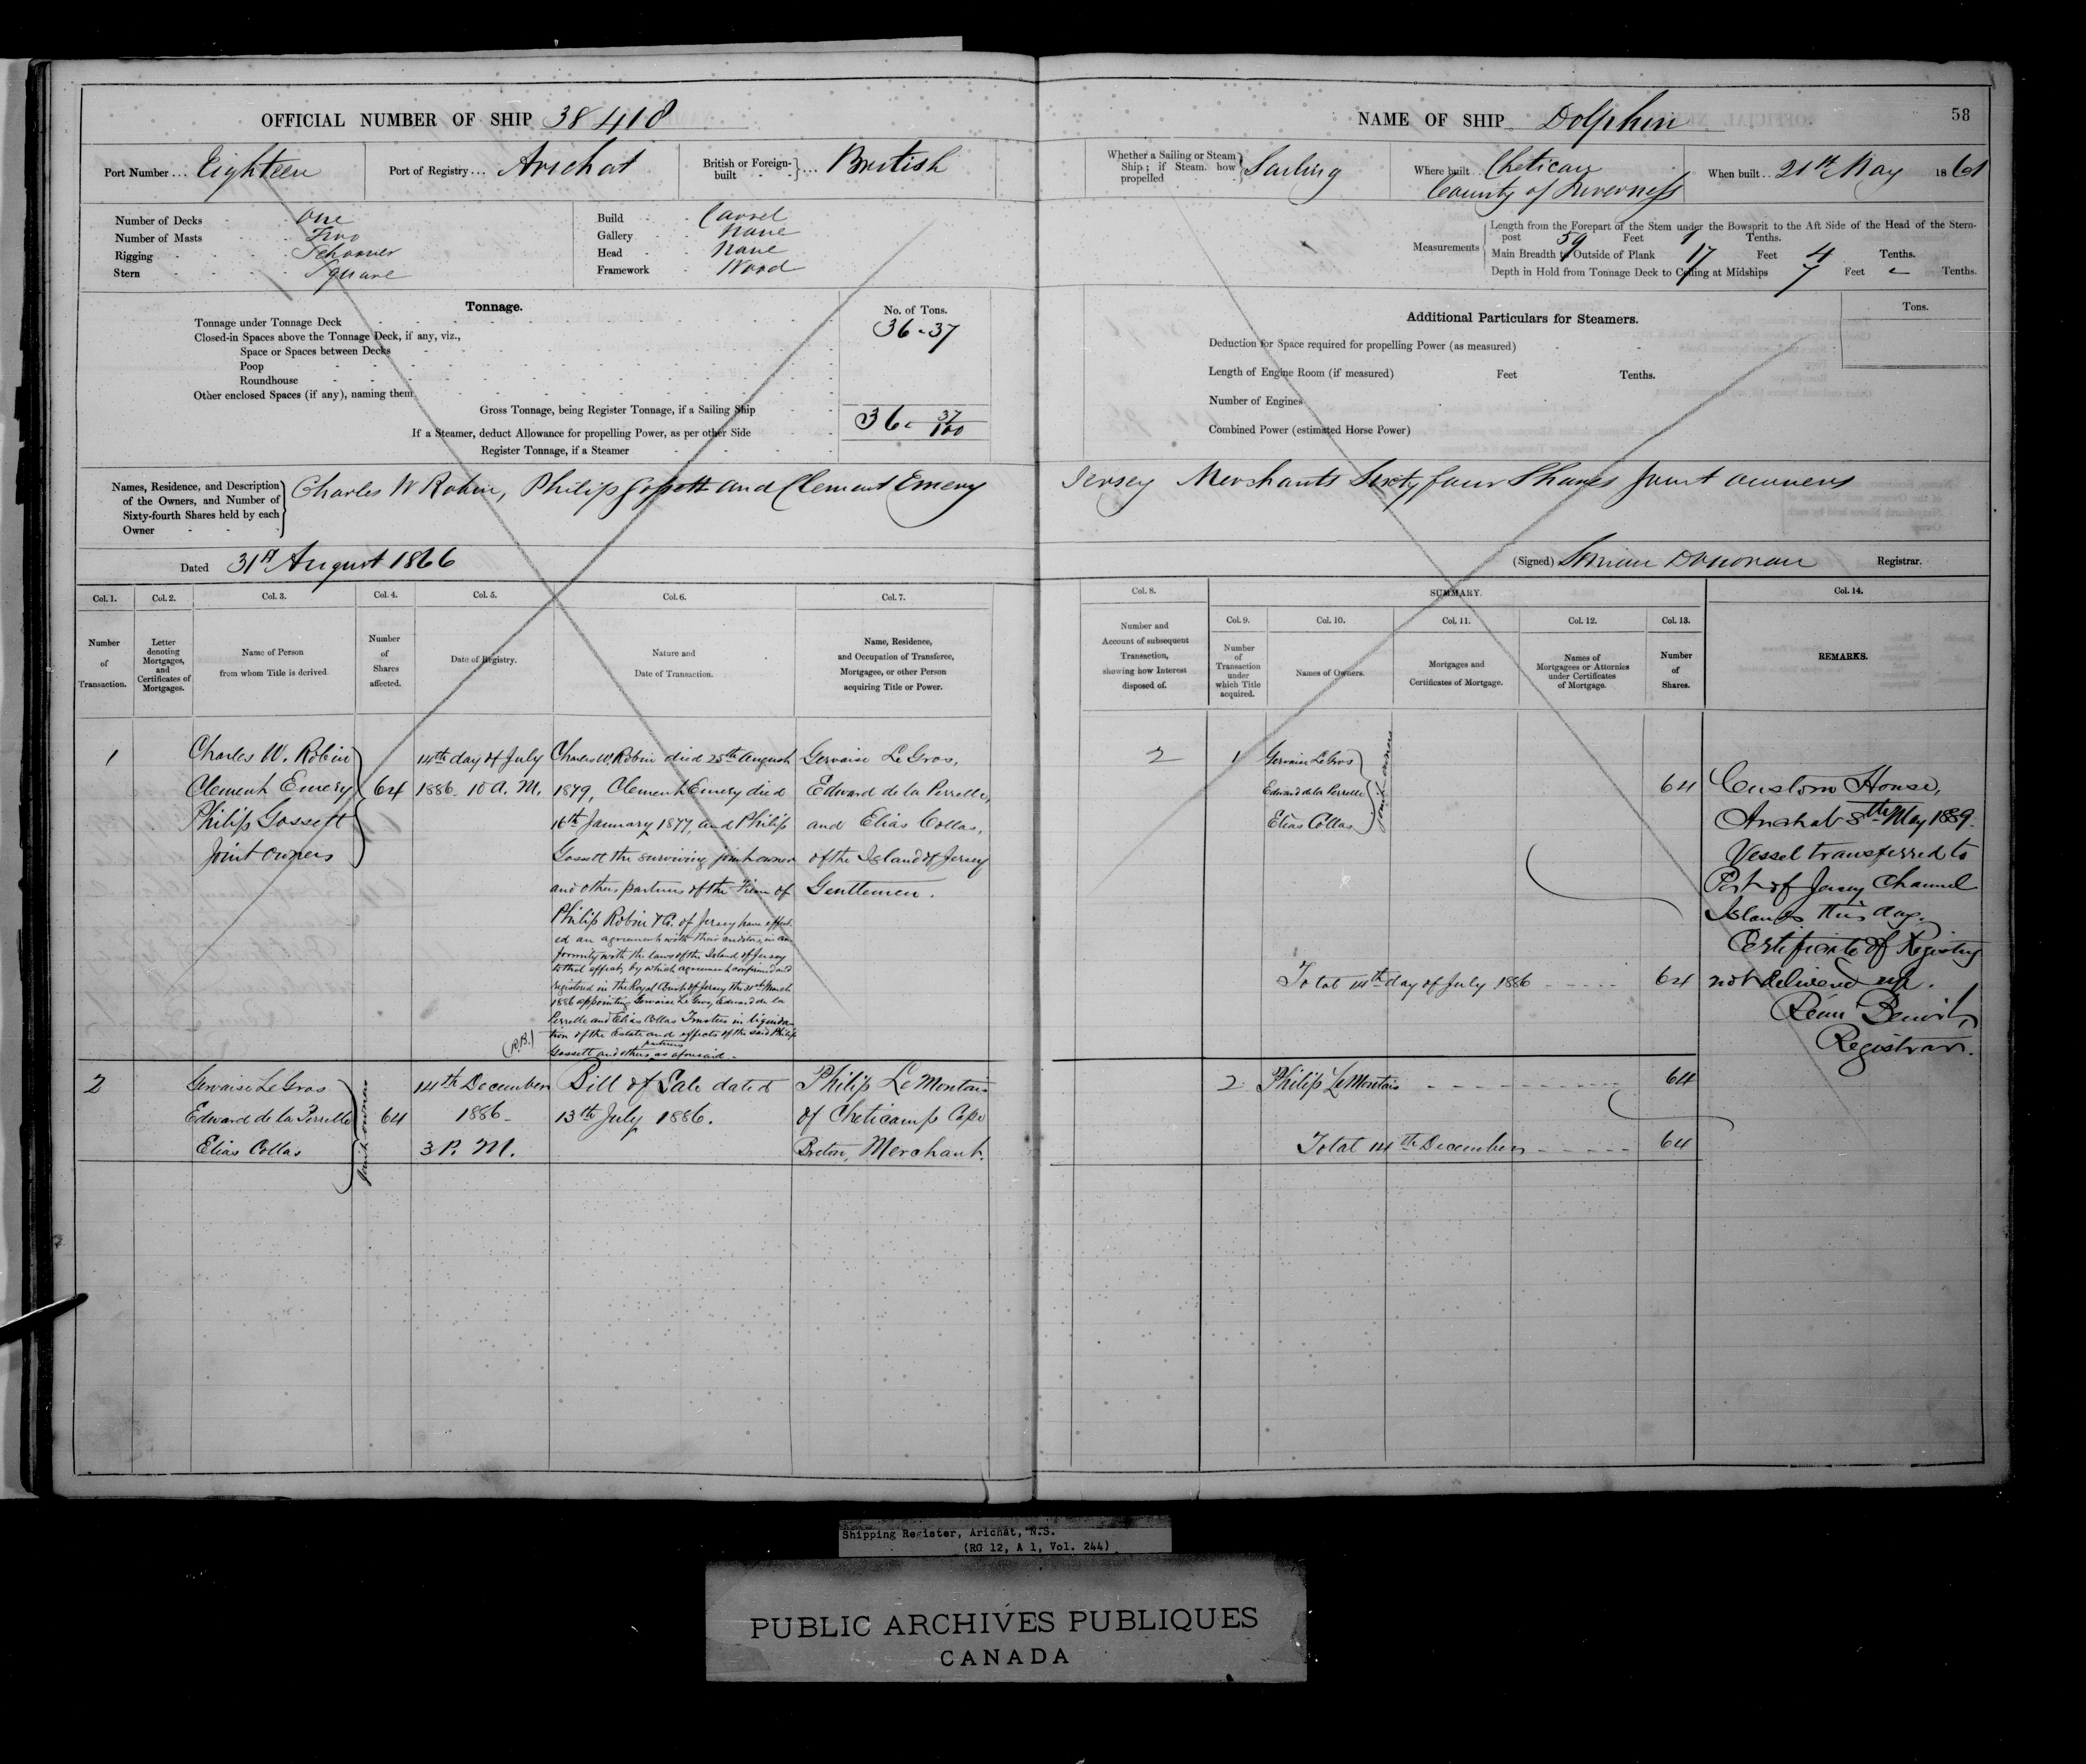 OFFICIAL NUMBER OF SHIP 38410
Port Number... Eighteen
Port of Registry... Arichat
British or Foreign-built ... British
Number of Decks One
Number of Masts Two
Rigging Schooner
Stern Square
Build Carvel
Gallery None
Head None
Framework Wood
Tonnage.
No. of Tons.
Tonnage under Tonnage Deck 36.37
Closed-in Spaces above the Tonnage Deck, if any, viz.,
Space or Spaces between Decks
Poop
Roundhouse
Other enclosed Spaces (if any), naming them
Gross Tonnage, being Register Tonnage, if a Sailing Ship 36. 37/100
If a Steamer, deduct Allowance for propelling Power, as per other Side
Register Tonnage, if a Steamer
Names, Residence, and Description
of the Owners, and Number of
Sixty-fourth Shares held by each
Owner
Charles W Robin, Philip Gossett and Clement Emery
Dated 31st August 1866
Col. 1. Col. 2. Col. 3. Col. 4. Col. 5. Col. 6. Col. 7.
Number of Transaction.
Letter denoting Mortgages, and Certificates of Mortgages.
Name of Person from whom Title is derived.
Number of Shares affected.
Date of Registry.
Nature and Date of Transaction.
Name, Residence, and Occupation of Transferee, Mortgagee, or other Person acquiring Title or Power.
1
Charles W. Robin
Clement Emery
Philip Gossett
Joint owners
64
14th day of July
1886. 10 A. M.
Charles W. Robin died 25th August
1879, Clement Emery died
16th January 1877, and Philip
Gossett the surviving joint owner
and others partners of the Firm of
Philip Robin & Co. of Jersey have effect
ed an agreement with their creditors, in con
formity with the laws of the Island of Jersey
to that effect, by which agreement confirmed and
registered in the Royal Court of Jersey the 31st March
1886 appointing Gervaise Le Gros, Edward de la
Perrelle and Elias Collas Trustees in liquida
tion of the Estate and effects of the said Philip
Gossett and others partners as aforesaid.
(R.B.)
Gervaise Le Gros,
Edward de la Perrelle,
and Elias Collas,
of the Island of Jersey
Gentlemen.
2
Gervaise Le Gros
Edward de la Perrelle
Elias Collas
joint owners
64
14th December
1886.
3 P. M.
Bill of Sale dated
13th July 1886.
Philip Le Montais
of Cheticamp Cape
Breton, Merchant.
NAME OF SHIP Dolphin
58
Whether a Sailing or Steam
Ship; if Steam, how
propelled
Sailing
Where built.. Chetican
County of Inverness
When built.. 21st May 1861
Measurements
Length from the Forepart of the Stem under the Bowsprit to the Aft Side of the Head of the Stern-
post 59 Feet 1 Tenths.
Main Breadth to Outside of Plank 17 Feet 4 Tenths.
Depth in Hold from Tonnage Deck to Ceiling at Midships 7 Feet - Tenths.
Additional Particulars for Steamers.
Tons.
Deduction for Space required for propelling Power (as measured)
Length of Engine Room (if measured) Feet Tenths.
Number of Engines
Combined Power (estimated Horse Power)
Jersey Merchants Sixty four Shares Joint owners
(Signed) Donovan Registrar.
Col. 8.
SUMMARY.
Col. 14.
Col. 9. Col. 10. Col. 11. Col. 12. Col. 13.
Number and Account of subsequent Transaction, showing how Interest disposed of.
Number of Transaction under which Title acquired.
Names of Owners.
Mortgages and Certificates of Mortgage.
Names of Mortgagees or Attornies under Certificates of Mortgage.
Number of Shares.
REMARKS.
2
1
Gervaise Le Gros
Edward de la Perrelle
Elias Collas
joint owners
64
Total 14th day of July 1886 64
2 Philip Le Montais 64
Total 14th December 64
Custom House,
Arichat 8th May 1889.
Vessel transferred to
Port of Jersey Channel
Islands this day.
Certificate of Registry
not delivered up.
Rémi Benoit,
Registrar.
Shipping Register, Arichat, N.S.
(RG 12, A 1, Vol. 244)
PUBLIC ARCHIVES PUBLIQUES
CANADA